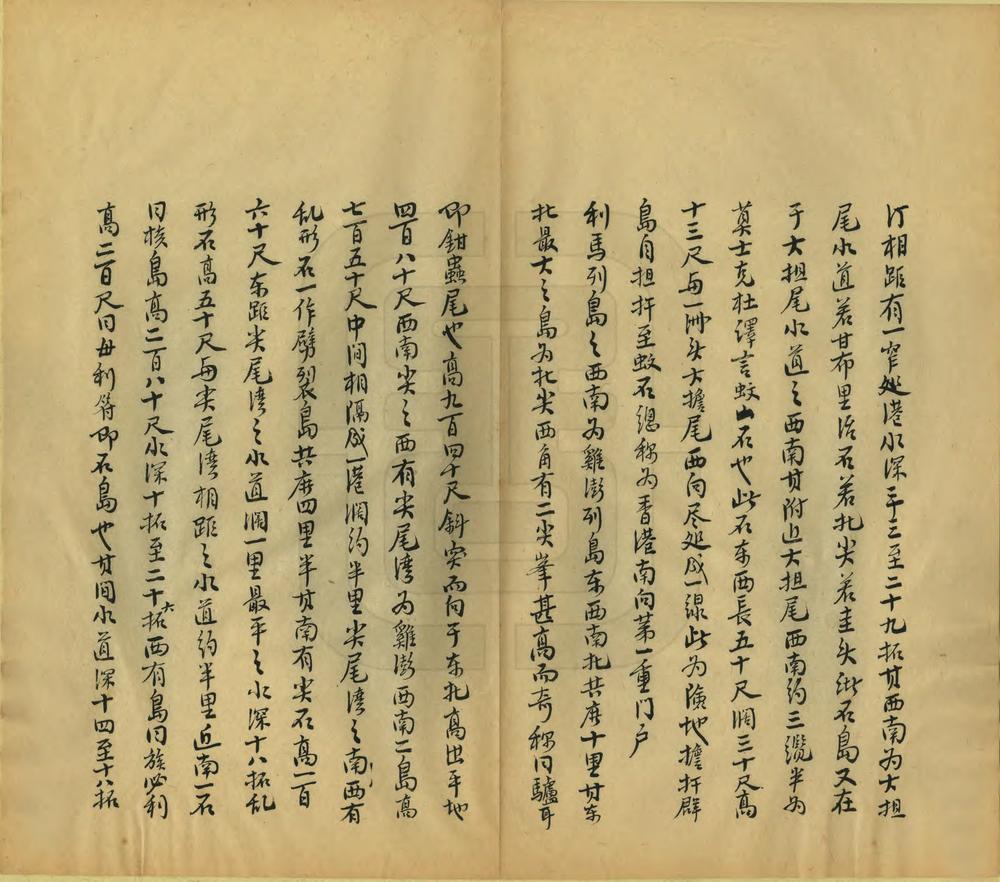 汀相距有一窄处港水深三三至二十九拓其西南为大担
尾水道若甘布里活石若北尖若圭头皆石岛又在
于大担尾水道之西南其附近大担尾西南约三缆半为
莫士克杜譯言蚊山石也此石东西長五十尺濶三十尺高
十三尺每一冊头大擔尾西向尽处成一線此为險地擔扞群
島自担扞至蚊石總称为香港南向苐一重门户
利馬列島之西南为雞澎列島东西南北共广十里其东
北最大之島为北尖西角有二尖峯甚高而奇称曰驢耳
即鉗蟲尾也高九百四十尺斜突而向于东北高出平地
四百八十尺西南尖之西有尖尾湾为雞澎西南二島高
七百五十尺中间相隔成一港濶约半里尖尾湾之南西有
乱形石一作劈列裂島共广四里半其南有尖石高一百
六十尺东距尖尾湾之水道濶一里最平之水深十八拓乱
形石高五十尺每尖尾湾相距之水道约半里近南一石
曰核島高二百八十尺水深十拓至二十六拓西有島曰族必利
高二百尺曰毌利符即石島也其间水道深十四至十八拓